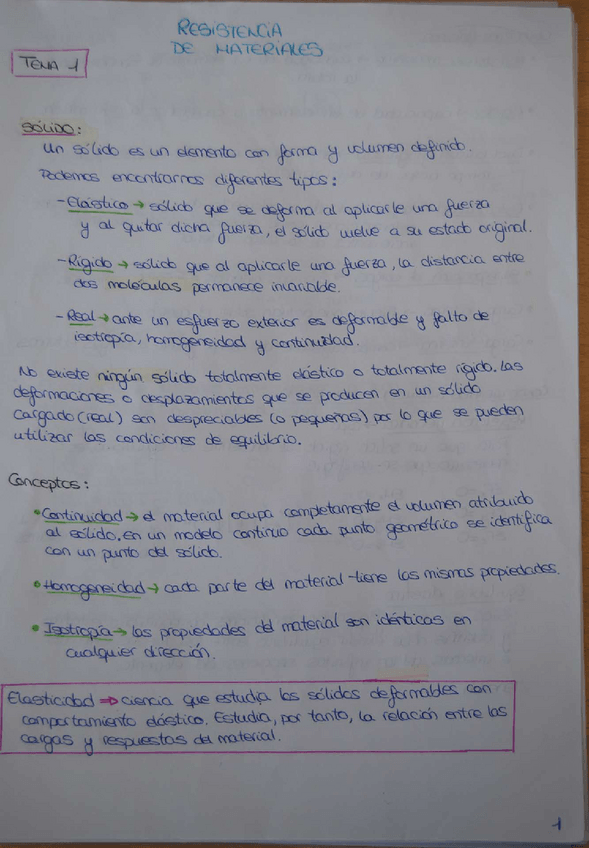 RESISTENCIA
DE MATERIALES
TEMA 1
SÓLIDO:
Un sólido es un elemento con forma y volumen definido.
Podemos encontrarnos diferentes tipos:
- Elástico → sólido que se deforma al aplicarle una fuerza
y al quitar dicha fuerza, el sólido vuelve a su estado original.
- Rígido → sólido que al aplicarle una fuerza, la distancia entre
dos moléculas permanece invariable.
- Real → ante un esfuerzo exterior es deformable y falto de
isotropía, homogeneidad y continuidad.
No existe ningún sólido totalmente elástico o totalmente rígido. Las
deformaciones o desplazamientos que se producen en un sólido
cargado (real) son despreciables (o pequeñas) por lo que se pueden
utilizar las condiciones de equilibrio.
Conceptos:
• Continuidad → el material ocupa completamente el volumen atribuido
al sólido, en un modelo continuo cada punto geométrico se identifica
con un punto del sólido.
• Homogeneidad → cada parte del material tiene las mismas propiedades.
• Isotropía → las propiedades del material son idénticas en
cualquier dirección.
Elasticidad ⇒ ciencia que estudia los sólidos deformables con
comportamiento elástico. Estudia, por tanto, la relación entre las
cargas y respuestas del material.
1